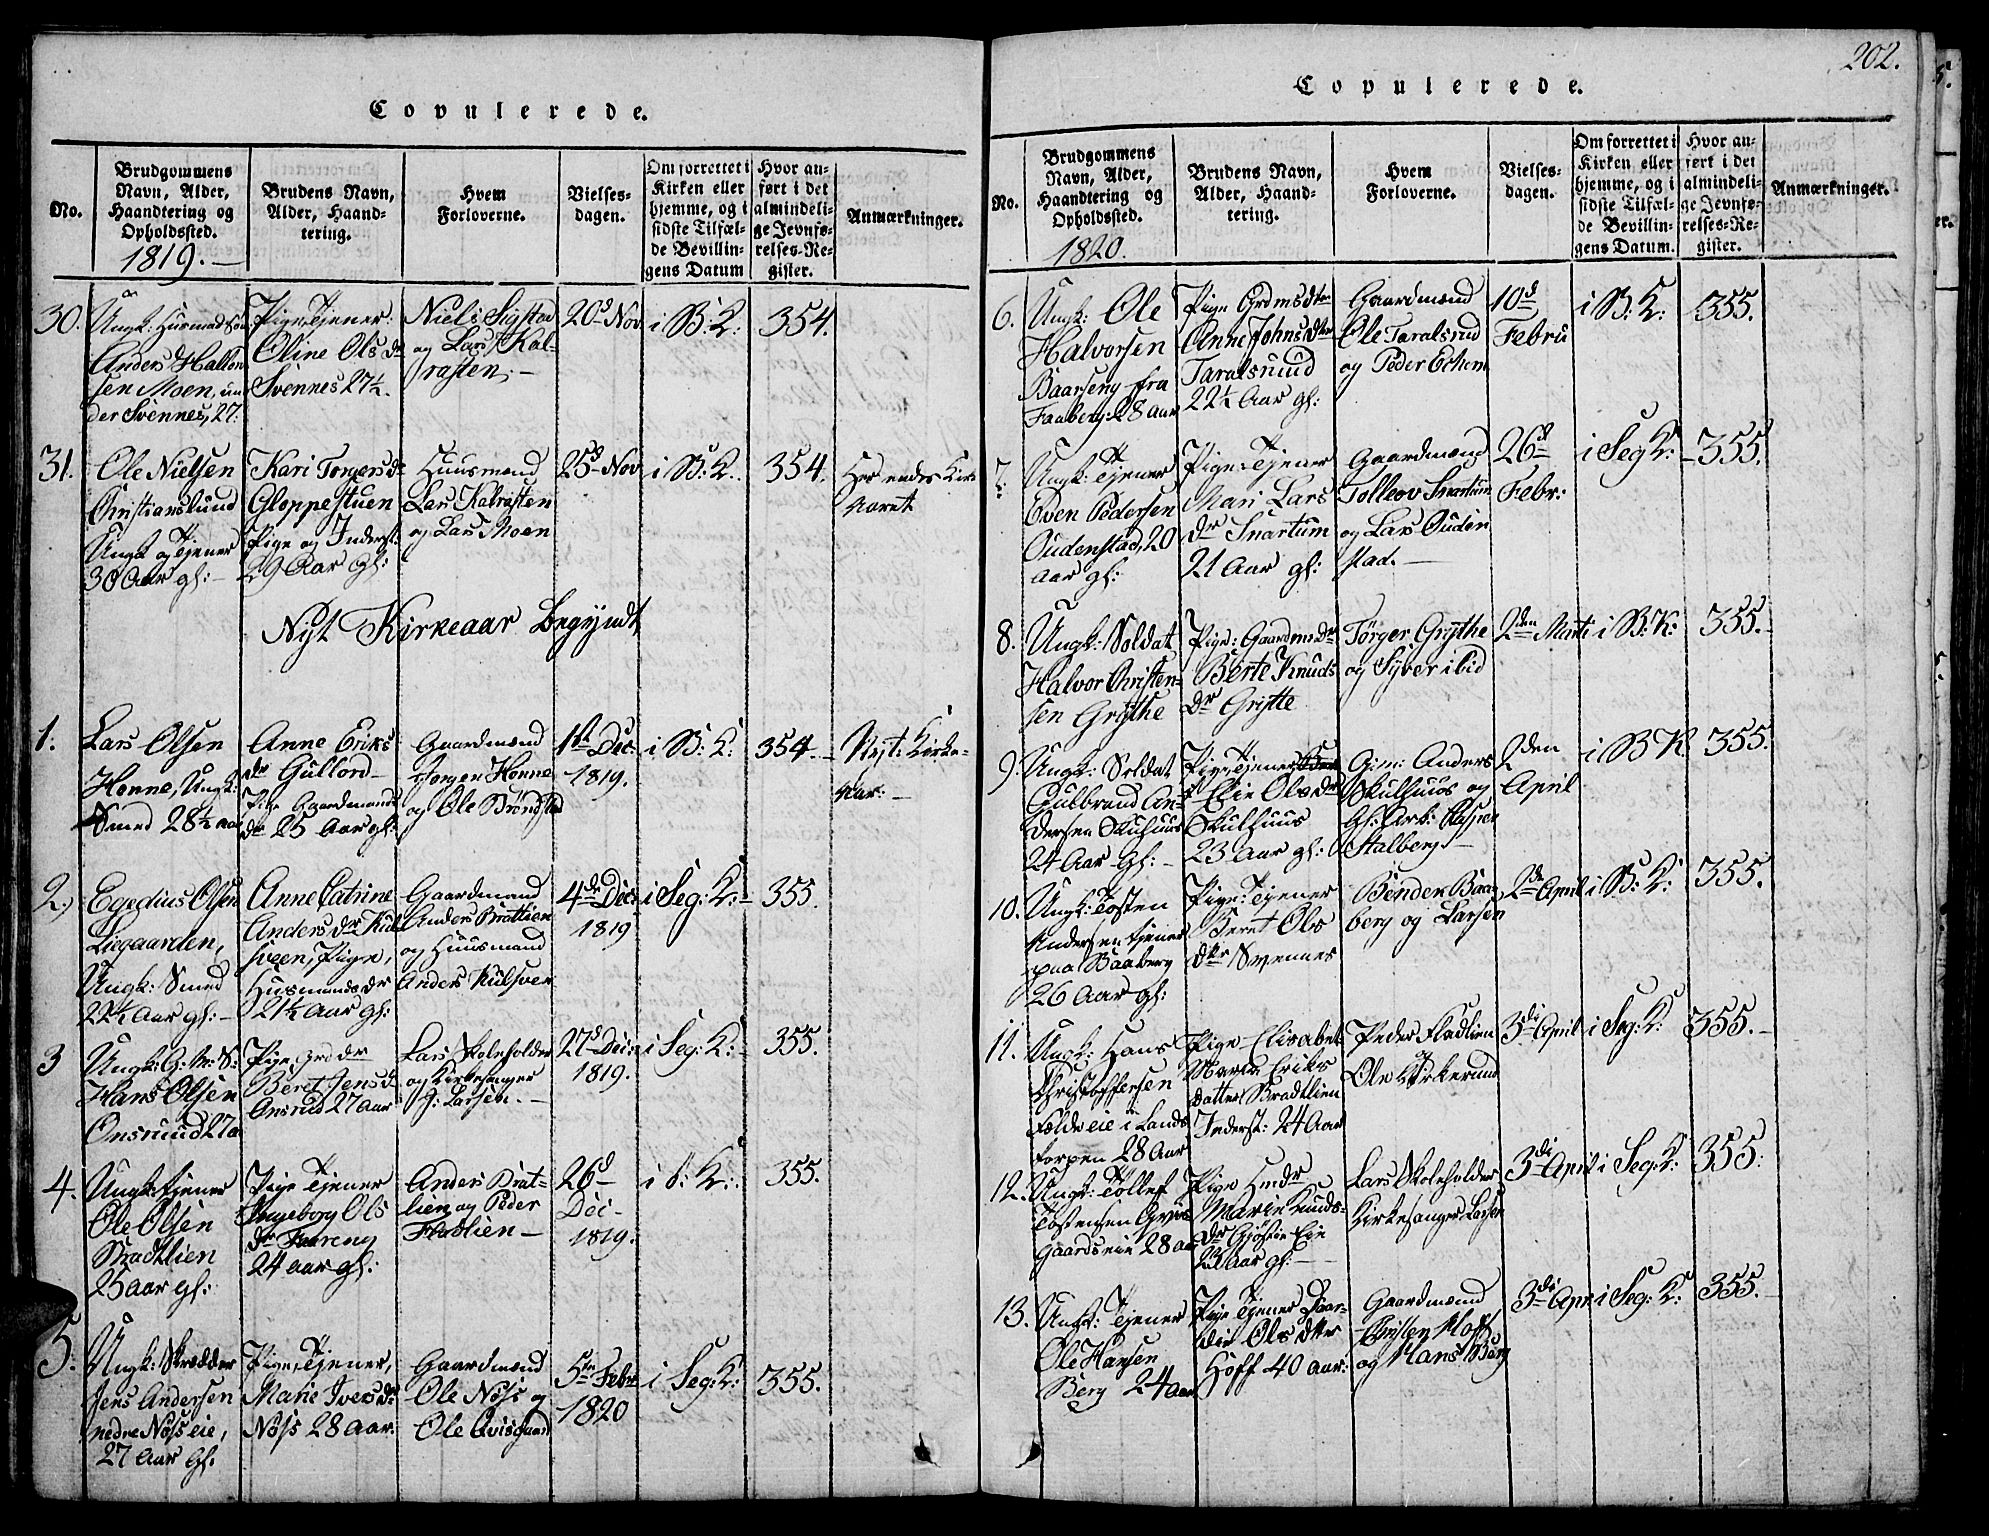 Copulerede.
No.
Brudgommens Navn, Alder, Haandtering og Opholdssted.
1819.
Brudens Navn, Alder, Haandtering.
Hvem Forloverne.
Vielses-dagen.
Om forrettet i Kirken eller hjemme, og i sidste Tilfælde Bevillingens Datum
Hvor anført i det almindelige Jevnførelses-Register.
Anmærkninger.
30.
Ungk: Husmandsøn
Anders Halvor
sen Moen, un
der Svennes, 27.
Pige, Tjener:
Oline Ols dr
Svennes 27½.
og Lars Kal-
rasten.
20d Nov.
i B: K:
354.
31.
Ole Nielsen
Christianslund
Ungk og Tjener
30 Aar gl:
Kari Torgersdr
Gloppestuen
Pige og Inderst:
29 Aar gl:
Huusmænd
Lars Kalrasten
og Lars Moen
25d Nov
i B: K.
354.
Her endes Kirke
Aaret
Nyt Kirkeaar begyndt
1.
Lars Olsen
Honne, Ungk:
Smed 28½ aar
Anne Eriks
dr Gullord
Pige Gaardmands
dr 25 Aar gl:
Gaardmænd
Jørgen Honne
og Ole Brøndstad
1st Dec:
1819.
i B: K:
354.
Nyt: Kirke-
Aar.
2.)
Egedius Olsen
Liegaarden,
Ungk: Smed
22½ Aar gl:
Anne Catrine
Anders dr Kul
sveen, Pige,
Husmandsdr
21½ Aar gl:
Gaardmand
Anders Bratlien
og Huusmand
Anders Kulsveen
4de Dec:
1819
i Seg: K:
355.
3
Ungk: G: M: S:
Hans Olsen
Onsruud 27 a
Pige, Grd dr
Beret Jensdr
Onsrud 27 Aar
Lars Skoleholder
og Kirkesanger
G: Larsen.
27d Dec:
1819.
i Seg: K:
355.
4.
Ungk: tjener
Ole Olsen
Bradtlien
25 aar gl:
Pige Tjener
Ingeborg Ols
dr Faareng
24 aar gl:
Anders Brat-
lien og Peder
Fladlien
26d
Dec:
1819.
i S: K:
355.
5.
Ungk: Skrædder
Jens Andersen
nedre Nøss eie,
27 Aar gl.
Pige, Tjener,
Marie Ivers dr
Nøss 28 aar.
Gaardmænd
Ole Nøss og
Ole Qvisgaard
5te Febr
1820
i Seg: K:
355.
202.
Copulerede.
No.
Brudgommens Navn, Alder, Haandtering og Opholdssted.
1820.
Brudens Navn, Alder, Haandtering.
Hvem Forloverne.
Vielses-dagen.
Om forrettet i Kirken eller hjemme, og i sidste Tilfælde Bevillingens Datum.
Hvor anført i det almindelige Jevnførelses-Register.
Anmærkninger.
6.
Ungk: Ole
Halvorsen
Baarseng fra
Faaberg: 28 aar
Pige Grdmsdtr
Anne Johnsdtr
Taralsruud
22½ Aar gl:
Gaardmænd
Ole Taralsrud
og Peder Echern
10d
Febru
i B: K:
355.
7.
Ungk: Tjener
Even Pedersen
Oudenstad, 20
aar gl:
Pige: Tjener
Mari Lars
dr Snartum
21 Aar gl:
Gaardmænd
Tolleov Snartum
og Lars Ouden
stad.
26d
Febr:
i Seg K:
355.
8.
Ungk: Soldat
Halvor Christen-
sen Grythe
Pige: Gaardmsdr
Berte Knuds
dr Grytte
Torger Grythe
og Syver ibid
2den Marti
i B: K:
355.
9.
Ungk: Soldat
Gulbrand An-
dersen Skulhuus
24 Aar gl:
Pige, Tjener
Elie Olsdr
Skulhuus
23 Aar gl:
G: m: Anders
Skulhuus og
Stalberg
2den
April
i B K
355.
10.
Ungk: Tosten
Andersen tjener
paa Baaberg
26 Aar gl:
Pige: Tjener
Beret Ols
dtr Svennes
Bender Baa
berg og Larsen
2de April
i B: K:
355.
11.
Ungk: Hans
Christoffersen
Foldv eie i Lands
torpen 28 Aar
Pige Elisabet
Maria Eriks
datter Bradtlien
Inderst: 24 Aar
Peder Fladlien
Ole Kirkerud
3di April
i Seg: K:
355.
12.
Ungk: Tollef
Tostensen
gaards eie 28 aar
Pige Hmdr
Marie Knuds-
dr Gjøstie Eie
23 Aar gl:
Lars Skoleholder
Kirkesanger Larsen
3di April
i Seg: K:
355.
13.
Ungk: Tjener
Ole Hansen
Berg 24 aar
Pige Tjener Baar-
die Ols dtr
Hoff 40 aar:
Gaardmænd
Christen Hoff
og Hans Berg
3di Apr:
i Seg: K:
355.